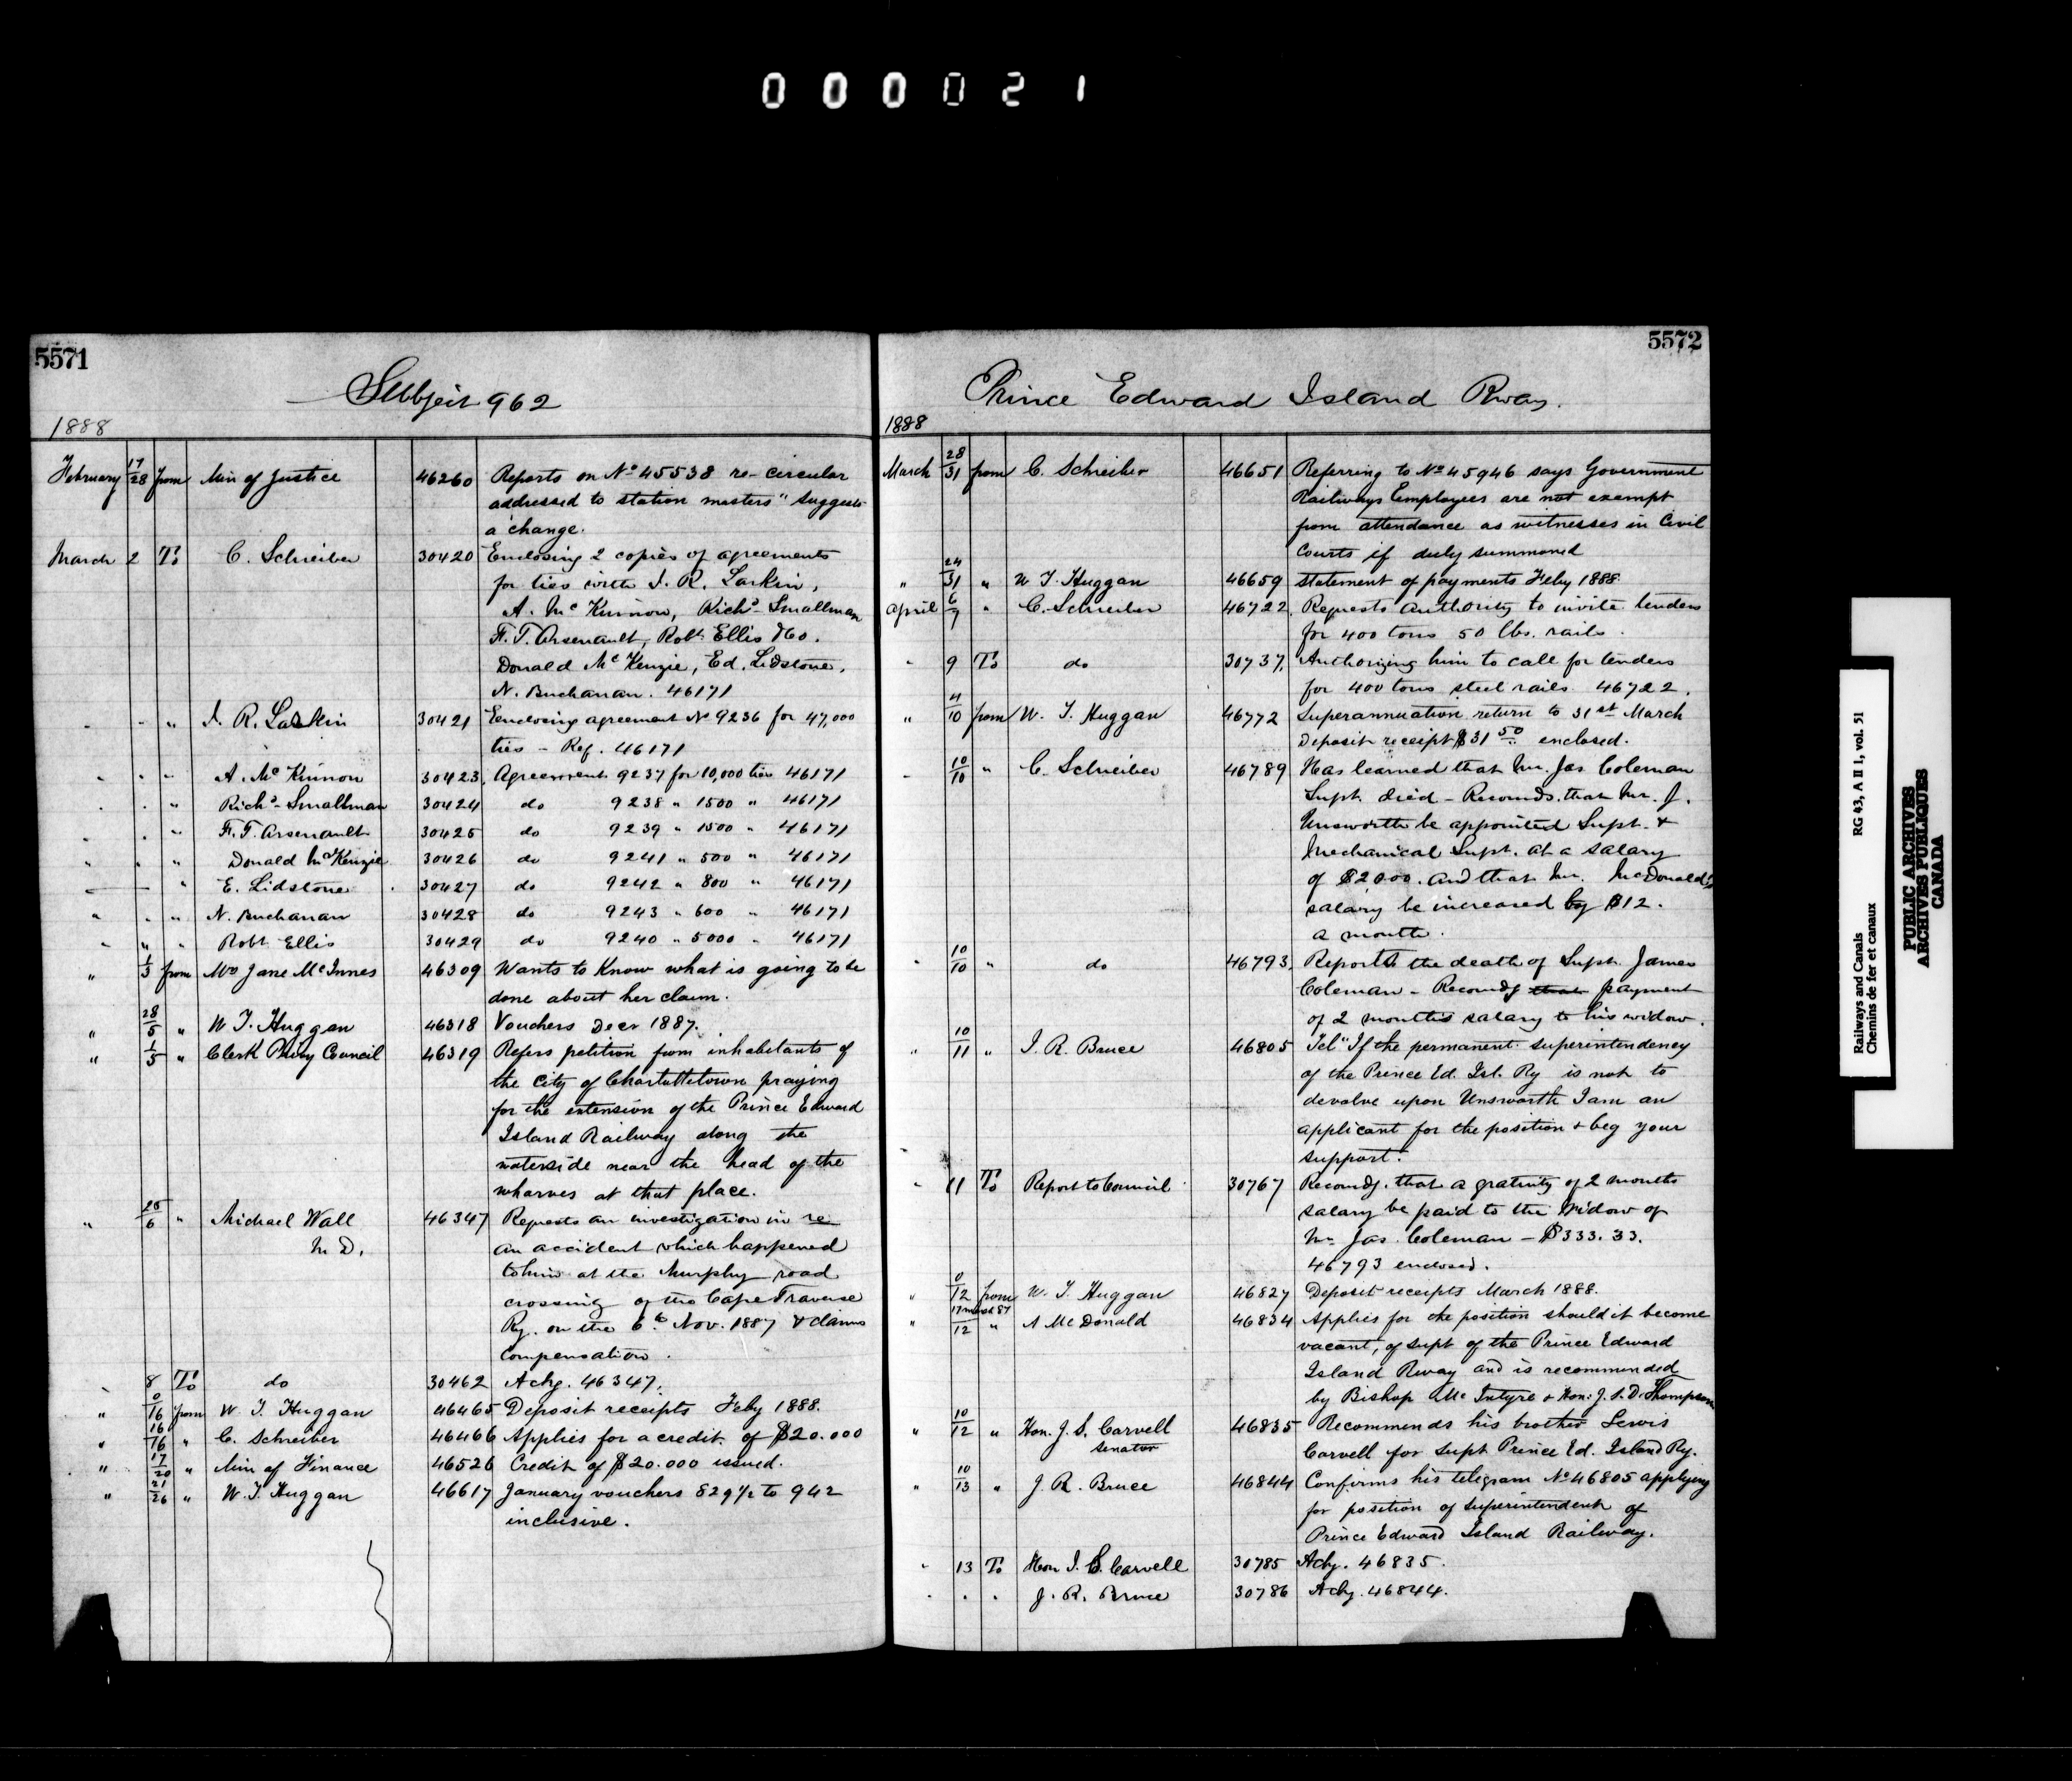 000021
5571
Subject 962
1888
February 17/28 from Min of Justice 46260 Reports on No 45538 re- circular
addressed to station masters" suggests
a change.
March 2 To C. Schreiber 30420 Enclosing 2 copies of agreements
for ties with J. R. Larkin,
A. Mc Kinnon, Richd Smallman
F. T. Arsenault, Robt Ellis &Co.
Donald McKenzie, Ed. Lidstone,
N. Buchanan. 46171
" " " J. R. Larkin 30421 Enclosing agreement No 9236 for 47,000
ties - Ref. 46171
" " " A. Mc Kinnon 30423 Agreement 9237 for 10,000 ties 46171
" " " Richd Smallman 30424 do 9238 " 1500 " 46171
" " " F. T. Arsenault 30425 do 9239 " 1500 " 46171
" " " Donald McKenzie 30426 do 9241 " 500 " 46171
" E. Lidstone 30427 do 9242 " 800 " 46171
" " " N. Buchanan 30428 do 9243 " 600 " 46171
" " " Robt Ellis 30429 do 9240 " 5000 " 46171
" 1/3 from Mrs Jane McInnes 46309 Wants to know what is going to be
done about her claim.
" 28/5 " W T. Huggan 46318 Vouchers Decr 1887.
" 1/5 " Clerk Privy Council 46319 Refers petition from inhabitants of
the City of Charlottetown praying
for the extension of the Prince Edward
Island Railway along the
waterside near the head of the
wharves at that place.
" 25/6 " Michael Wall 46347 Requests an investigation in re
M.D. an accident which happened
to him at the Murphy road
crossing of the Cape Traverse
Ry. on the 6th Nov. 1887 & claims
compensation.
" 8 To do 30462 Ackg. 46347.
" 0/16 from W. T. Huggan 46465 Deposit receipts Feby 1888.
" 16/16 " C. Schreiber 46466 Applies for a credit of $20.000
" 17/20 " Min of Finance 46526 Credit of $20.000 issued.
" 21/26 " W. T. Huggan 46617 January vouchers 829½ to 942
inclusive.
5572
Prince Edward Island Rway.
1888
March 28/31 from C. Schreiber 46651 Referring to No 45946 says Government
Railways Employees are not exempt
from attendance as witnesses in Civil
Courts if duly summoned
" 24/31 " W T. Huggan 46659 statement of payments Feby 1888
April 6/7 " C. Schreiber 46722 Requests authority to invite tenders
for 400 tons 50 lbs. rails.
" 9 To do 30737. Authorizing him to call for tenders
for 400 tons steel rails 46722.
" 4/10 from W. T. Huggan 46772 Superannuation return to 31st March
Deposit receipt $31 50 enclosed.
" 10/10 " C. Schreiber 46789 Has learned that Mr. Jas Coleman
Supt. died - Recomds. that Mr. J.
Unsworth be appointed Supt. &
Mechanical Supt. at a salary
of $2000. and that Mr. McDonald's
salary be increased by $12.
a month.
" 10/10 " do 46793. Reports the death of Supt. James
Coleman - Recomds that payment
of 2 months salary to his widow.
" 10/11 " J. R. Bruce 46805 Tel "If the permanent superintendency
of the Prince Ed. Isl. Ry is not to
devolve upon Unsworth I am an
applicant for the position & beg your
support."
" 11 To Report to Council 30767 Recomds. that a gratuity of 2 months
salary be paid to the Widow of
Mr Jas. Coleman - $333.33.
46793 enclosed.
" 0/12 from W. T. Huggan 46827 Deposit receipts March 1888.
" 17 March 87/12 " A McDonald 46834 Applies for the position should it become
vacant, of supt of the Prince Edward
Island Rway and is recommended
by Bishop McIntyre & Hon. J. S. D. Thompson
" 10/12 " Hon. J. S. Carvell 46835 Recommends his brother Lewis
Senator Carvell for supt Prince Ed. Island Ry.
" 10/13 " J. R. Bruce 46844 Confirms his telegram No 46805 applying
for position of superintendent of
Prince Edward Island Railway.
" 13 To Hon J. S. Carvell 30785 Ackg. 46835.
" " " J. R. Bruce 30786 Ackg. 46844.
Railways and Canals RG 43, A II 1, vol. 51
Chemins de fer et canaux
PUBLIC ARCHIVES
ARCHIVES PUBLIQUES
CANADA